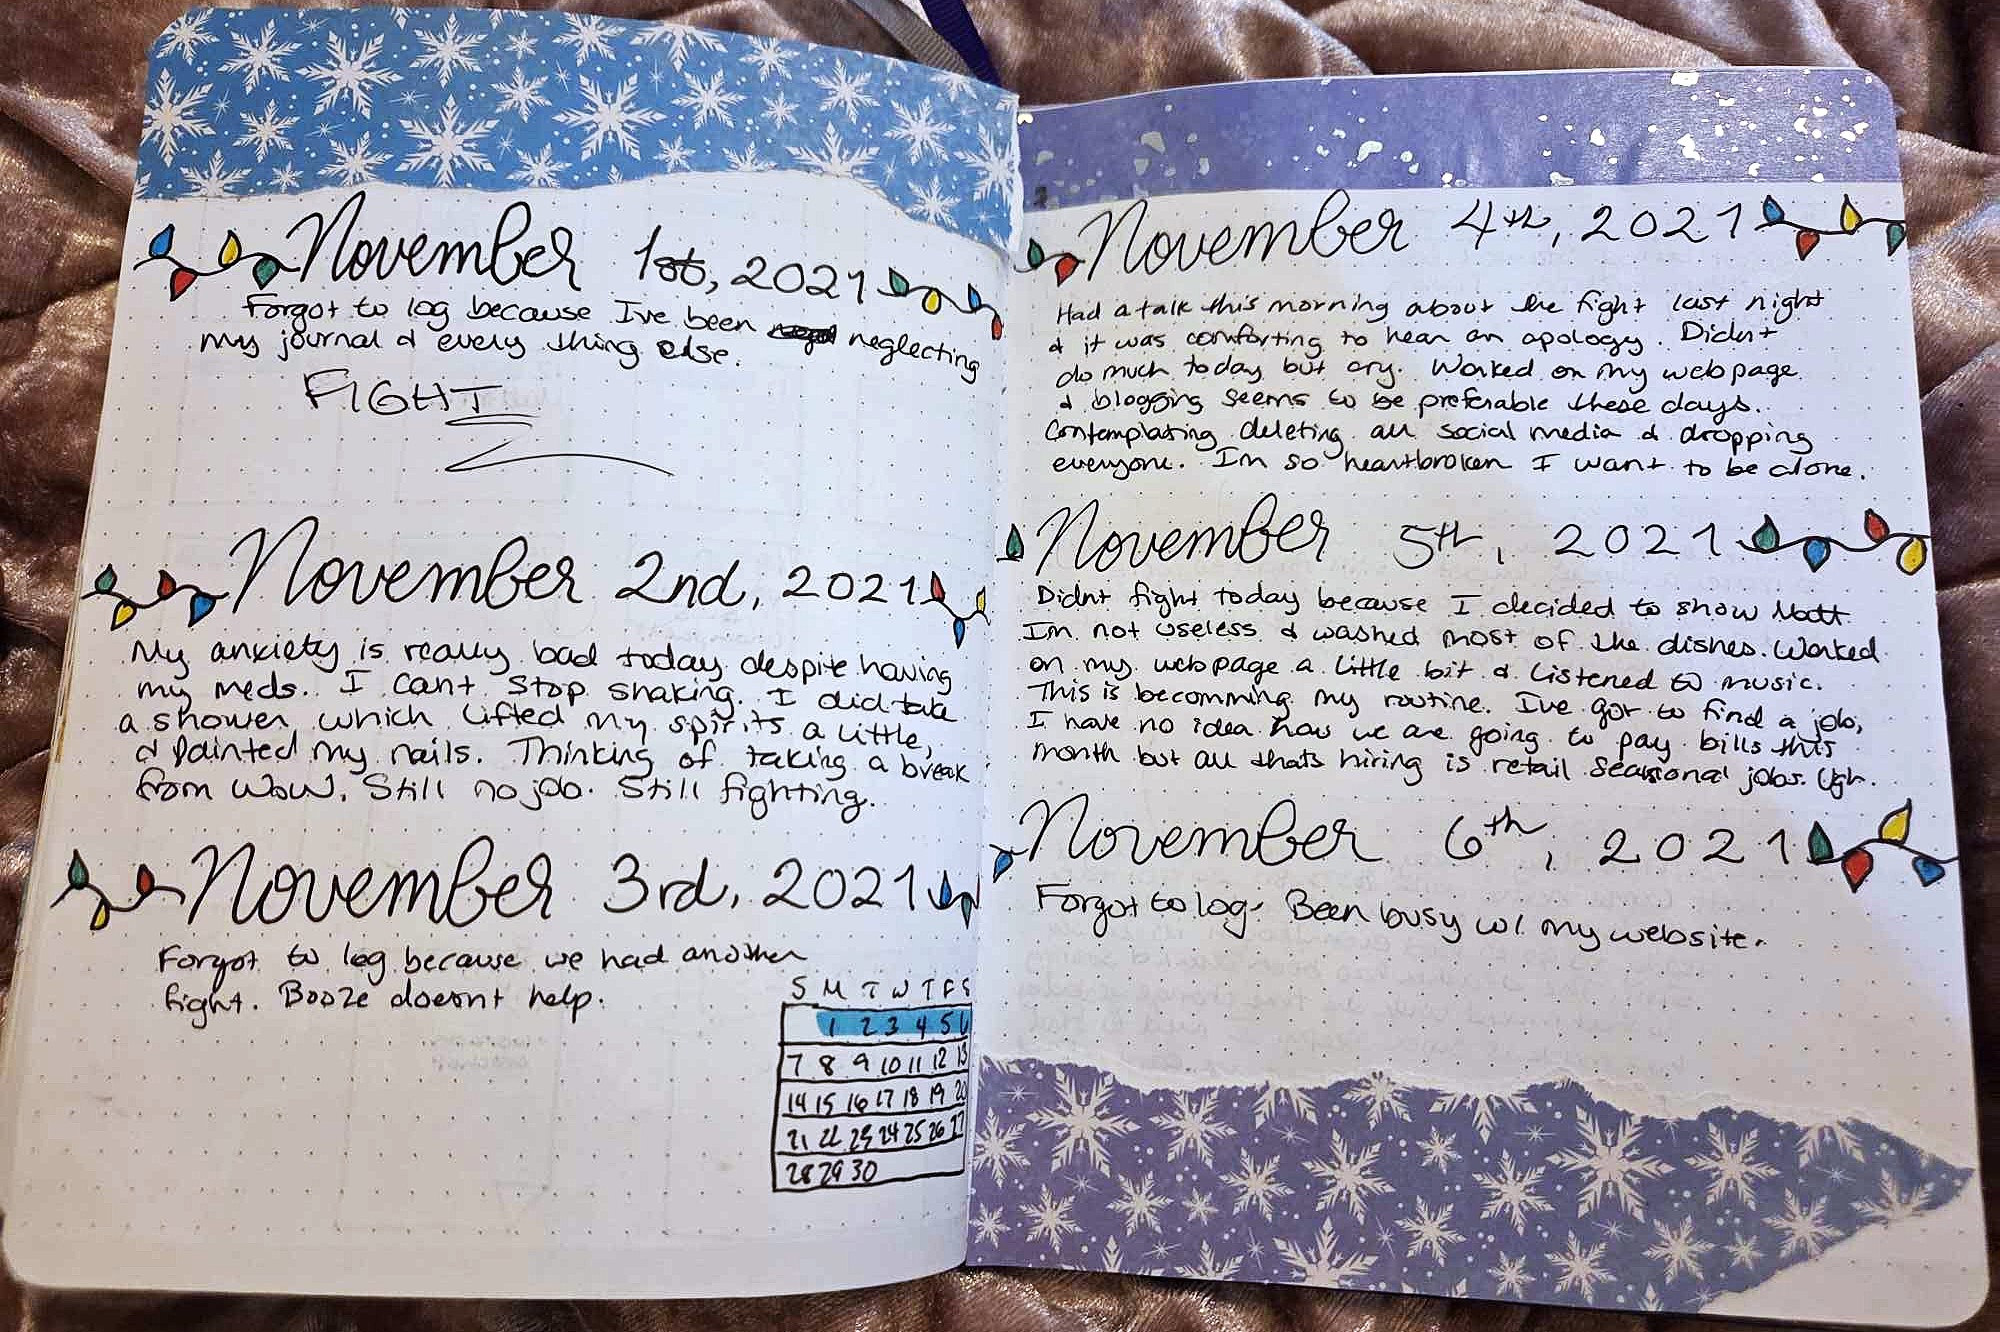 November 1st, 2021
Forgot to log because I've been neglecting
my journal & every thing else.
FIGHT
November 2nd, 2021
My anxiety is really bad today despite having
my meds. I cant stop shaking. I did take
a shower which lifted my spirits a little,
& painted my nails. Thinking of taking a break
from WoW. Still no job. Still fighting.
November 3rd, 2021
Forgot to log because we had another
fight. Booze doesnt help.
S M T W T F S
1 2 3 4 5 6
7 8 9 10 11 12 13
14 15 16 17 18 19 20
21 22 23 24 25 26 27
28 29 30
November 4th, 2021
Had a talk this morning about the fight last night
& it was comforting to hear an apology. Didnt
do much today but cry. Worked on my webpage
& blogging seems to be preferable these days.
Contemplating deleting all social media & dropping
everyone. Im so heartbroken I want to be alone.
November 5th, 2021
Didnt fight today because I decided to show Matt
Im not useless & washed most of the dishes. Worked
on my webpage a little bit & listened to music.
This is becomming my routine. I've got to find a job,
I have no idea how we are going to pay bills this
month but all thats hiring is retail seasonal jobs. Ugh.
November 6th, 2021
Forgot to log. Been busy w/ my website.